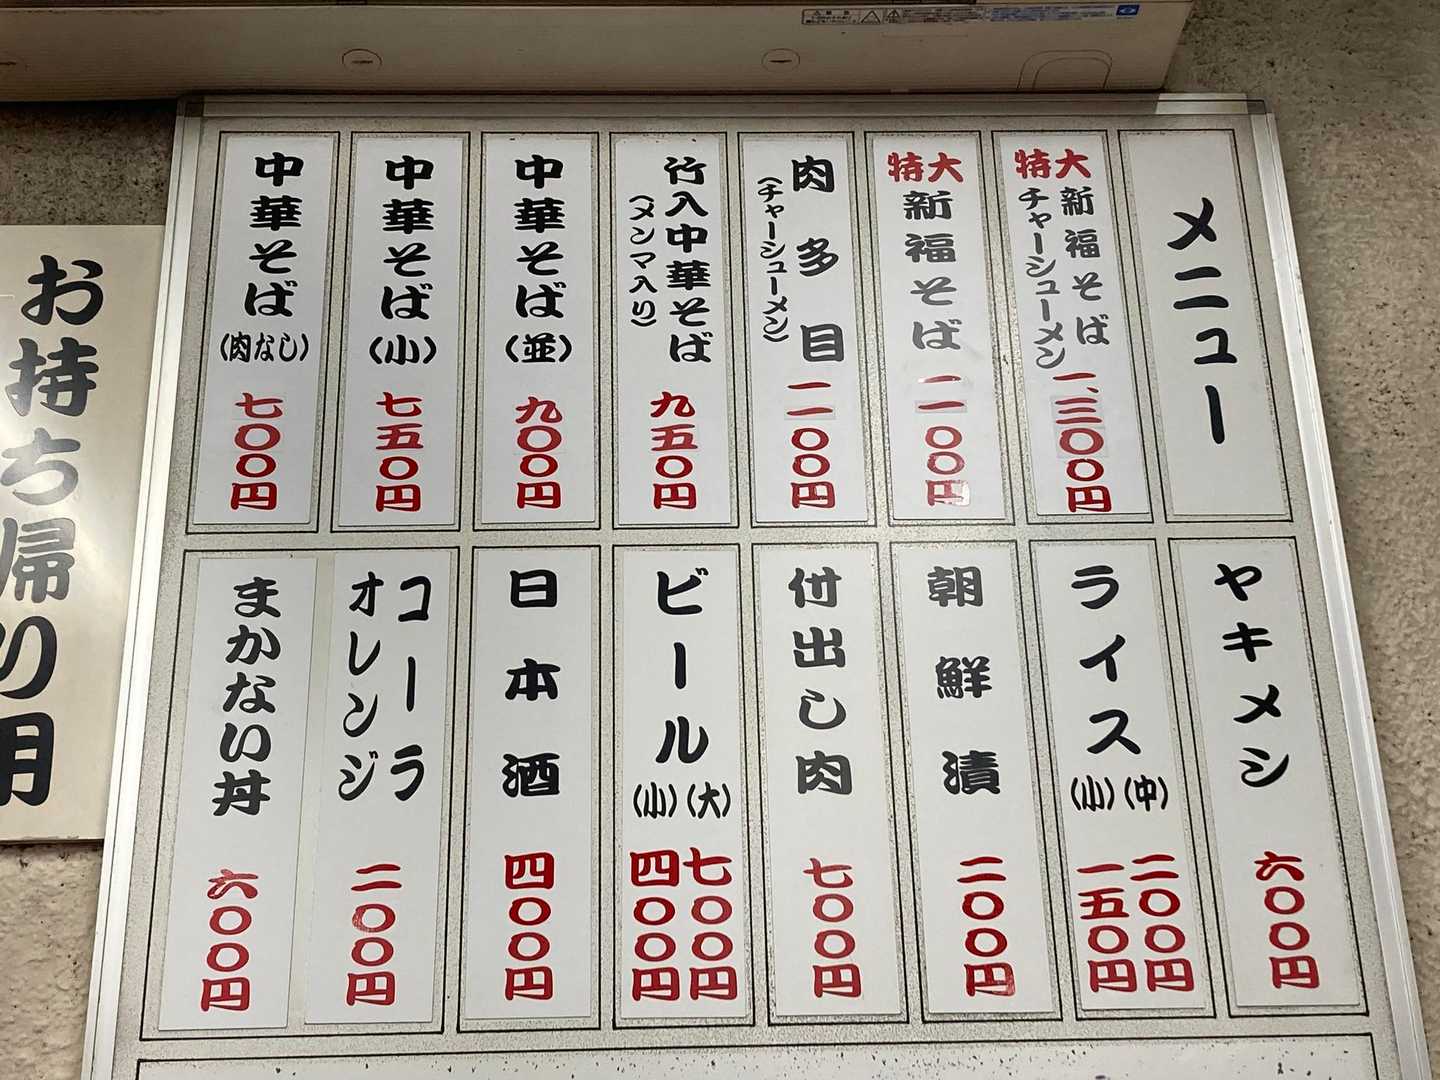 メニュー
特大
新福そば
チャーシューメン
一、三〇〇円
特大
新福そば
一一〇〇円
肉多目
(チャーシューメン)
一一〇〇円
竹入中華そば
(メンマ入り)
九五〇円
中華そば
(並)
九〇〇円
中華そば
(小)
七五〇円
中華そば
(肉なし)
七〇〇円
ヤキメシ
六〇〇円
ライス
(中)
二〇〇円
(小)
一五〇円
朝鮮漬
二〇〇円
付出し肉
七〇〇円
ビール
(大)
七〇〇円
(小)
四〇〇円
日本酒
四〇〇円
コーラ
オレンジ
二〇〇円
まかない丼
六〇〇円
お持ち帰り用